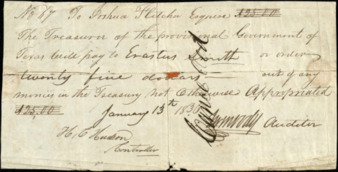 No 17 To Joshua Fletcher Esquire $25.00
The Treasurer of the provisional Government of
Texas will pay to Erastus Smith or order
twenty five dollars out of any
monies in the Treasury not Otherwise Appropriated
$25.00 January 13th 183
H. C. Hudson Auditor
Controller